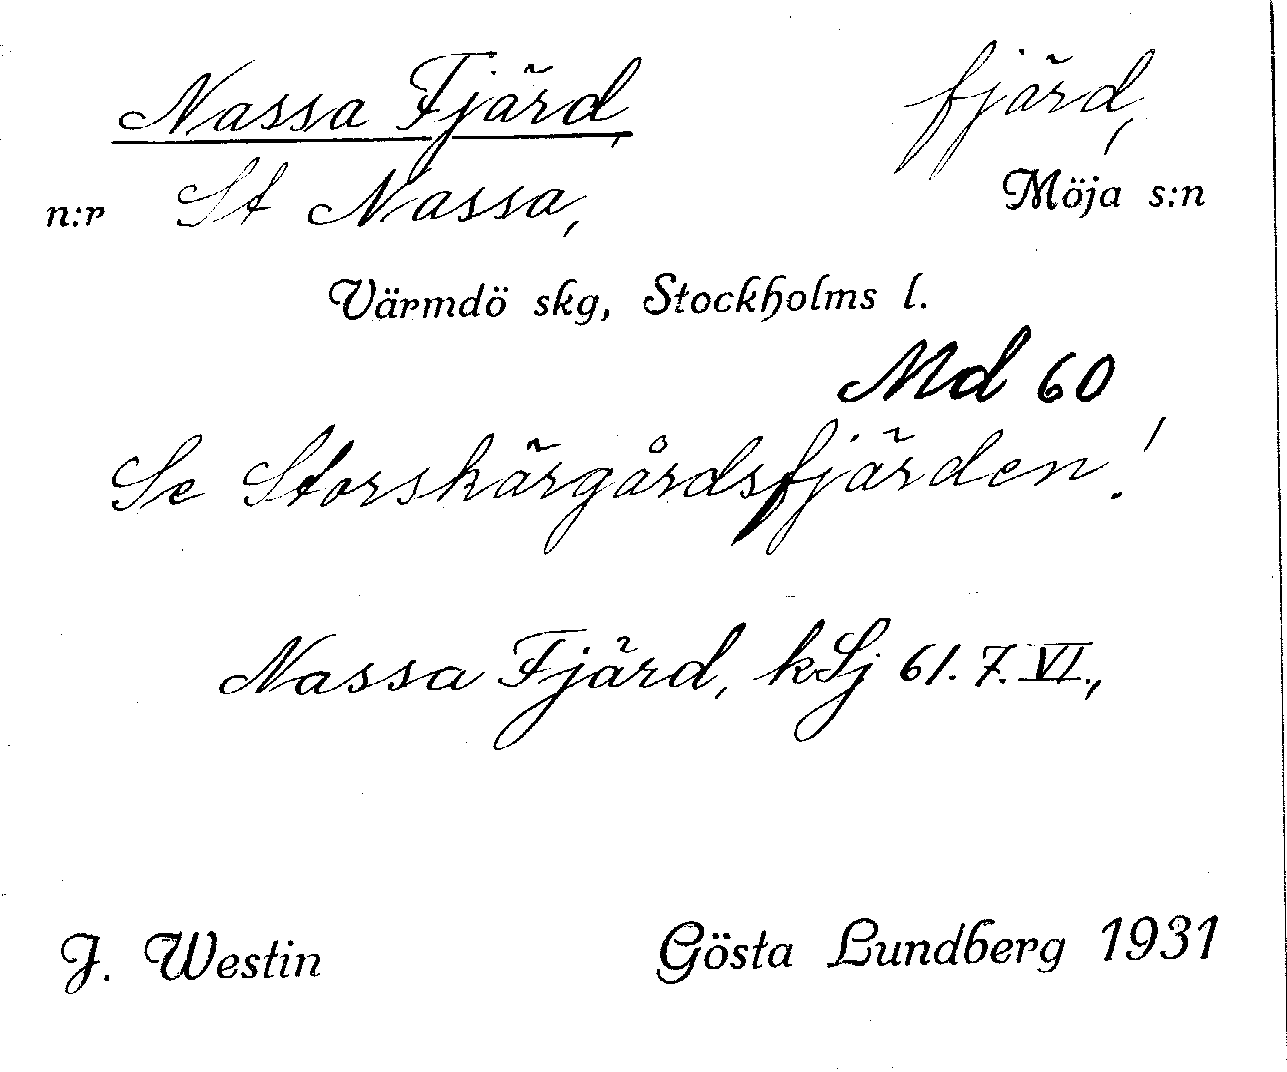 Nassa Fjärd, fjärd,
n:r St Nassa, Möja s:n
Värmdö skg, Stockholms l.
Md 60
Se Storskärgårdsfjärden!
Nassa Fjärd, kSj 61. 7. VI.,
J. Westin Gösta Lundberg 1931